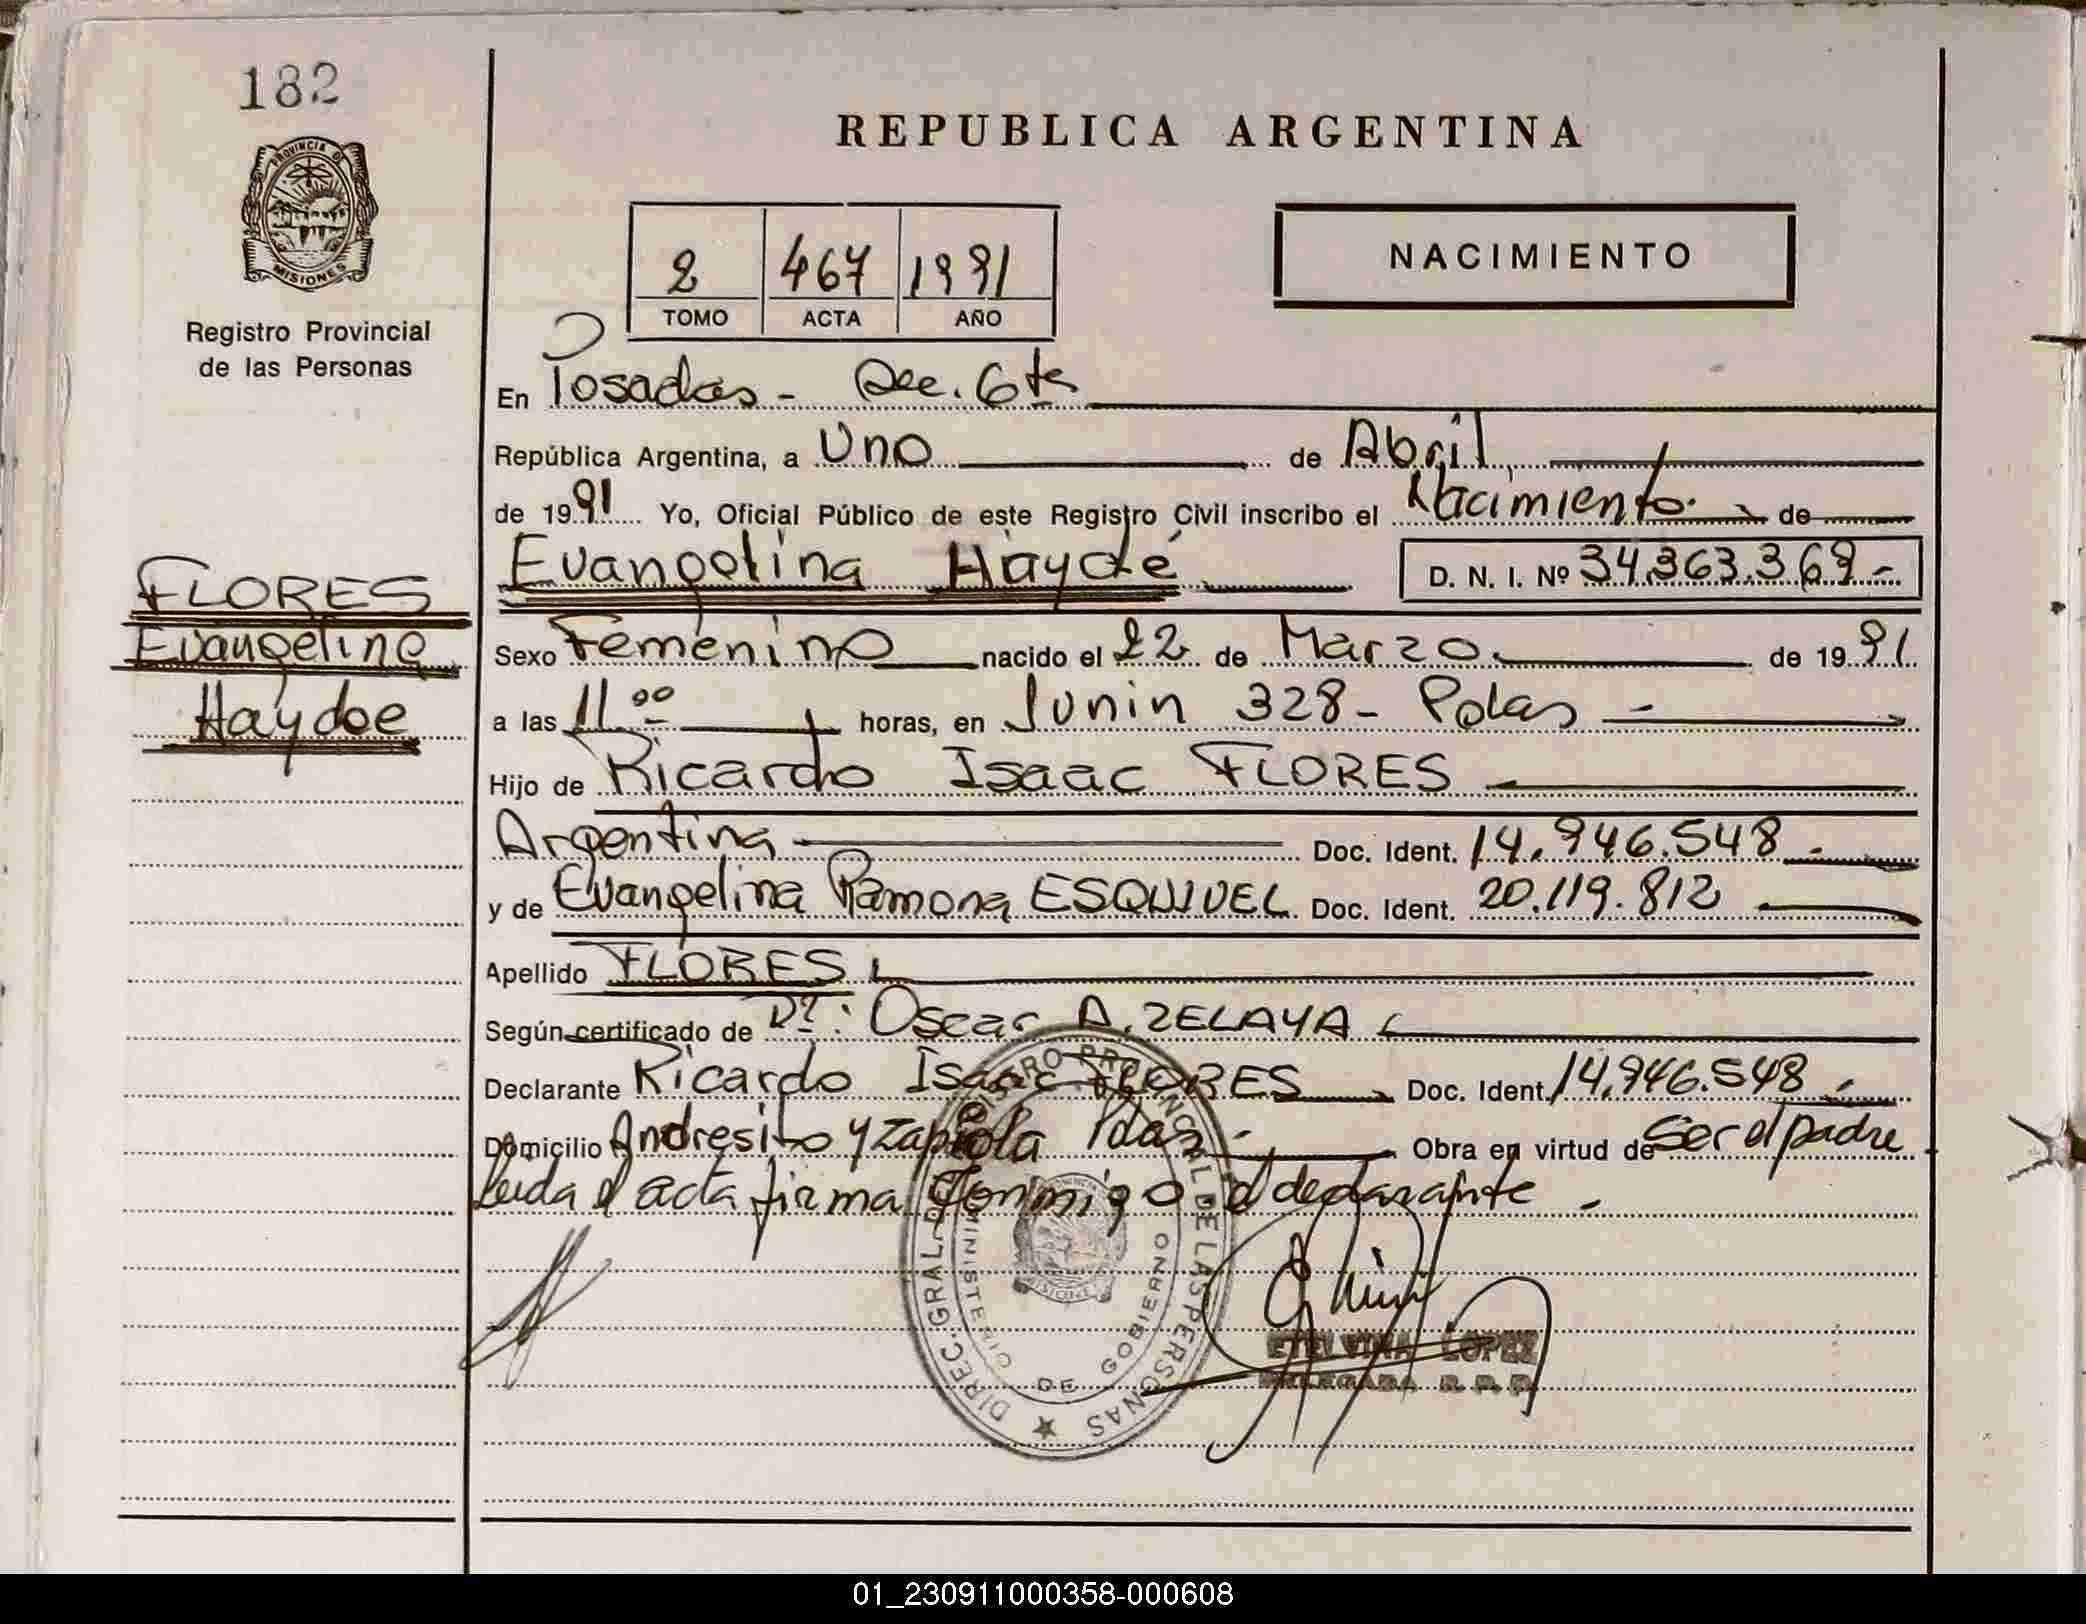 182
PROVINCIA DE
MISIONES
Registro Provincial
de las Personas
REPUBLICA ARGENTINA
2 467 1991
TOMO ACTA AÑO
NACIMIENTO
En Posadas - Sec. 6ta
República Argentina, a Uno de Abril
de 1991 Yo, Oficial Público de este Registro Civil inscribo el Nacimiento de
Evangelina Haydé D. N. I. Nº 34.363.369-
FLORES
Evangelina
Haydee
Sexo Femenino nacido el 22 de Marzo de 1991
a las 11 00 horas, en Junin 328- Pdas -
Hijo de Ricardo Isaac FLORES
Argentina Doc. Ident. 14.946.548 -
y de Evangelina Ramona ESQUIVEL Doc. Ident. 20.119.812
Apellido FLORES
Según certificado de Dr: Oscar A. ZELAYA
Declarante Ricardo Isaac FLORES Doc. Ident. 14.946.548 -
Domicilio Andresito y Zapiola Pdas - Obra en virtud de Ser el padre
leida el acta firma conmigo el declarante -
DIREC. GRAL. DE REGISTRO PROVINCIAL DE LAS PERSONAS
MINISTERIO DE GOBIERNO
MISIONES
ETELVINA LOPEZ
DELEGADA R. P. P.
01_230911000358-000608